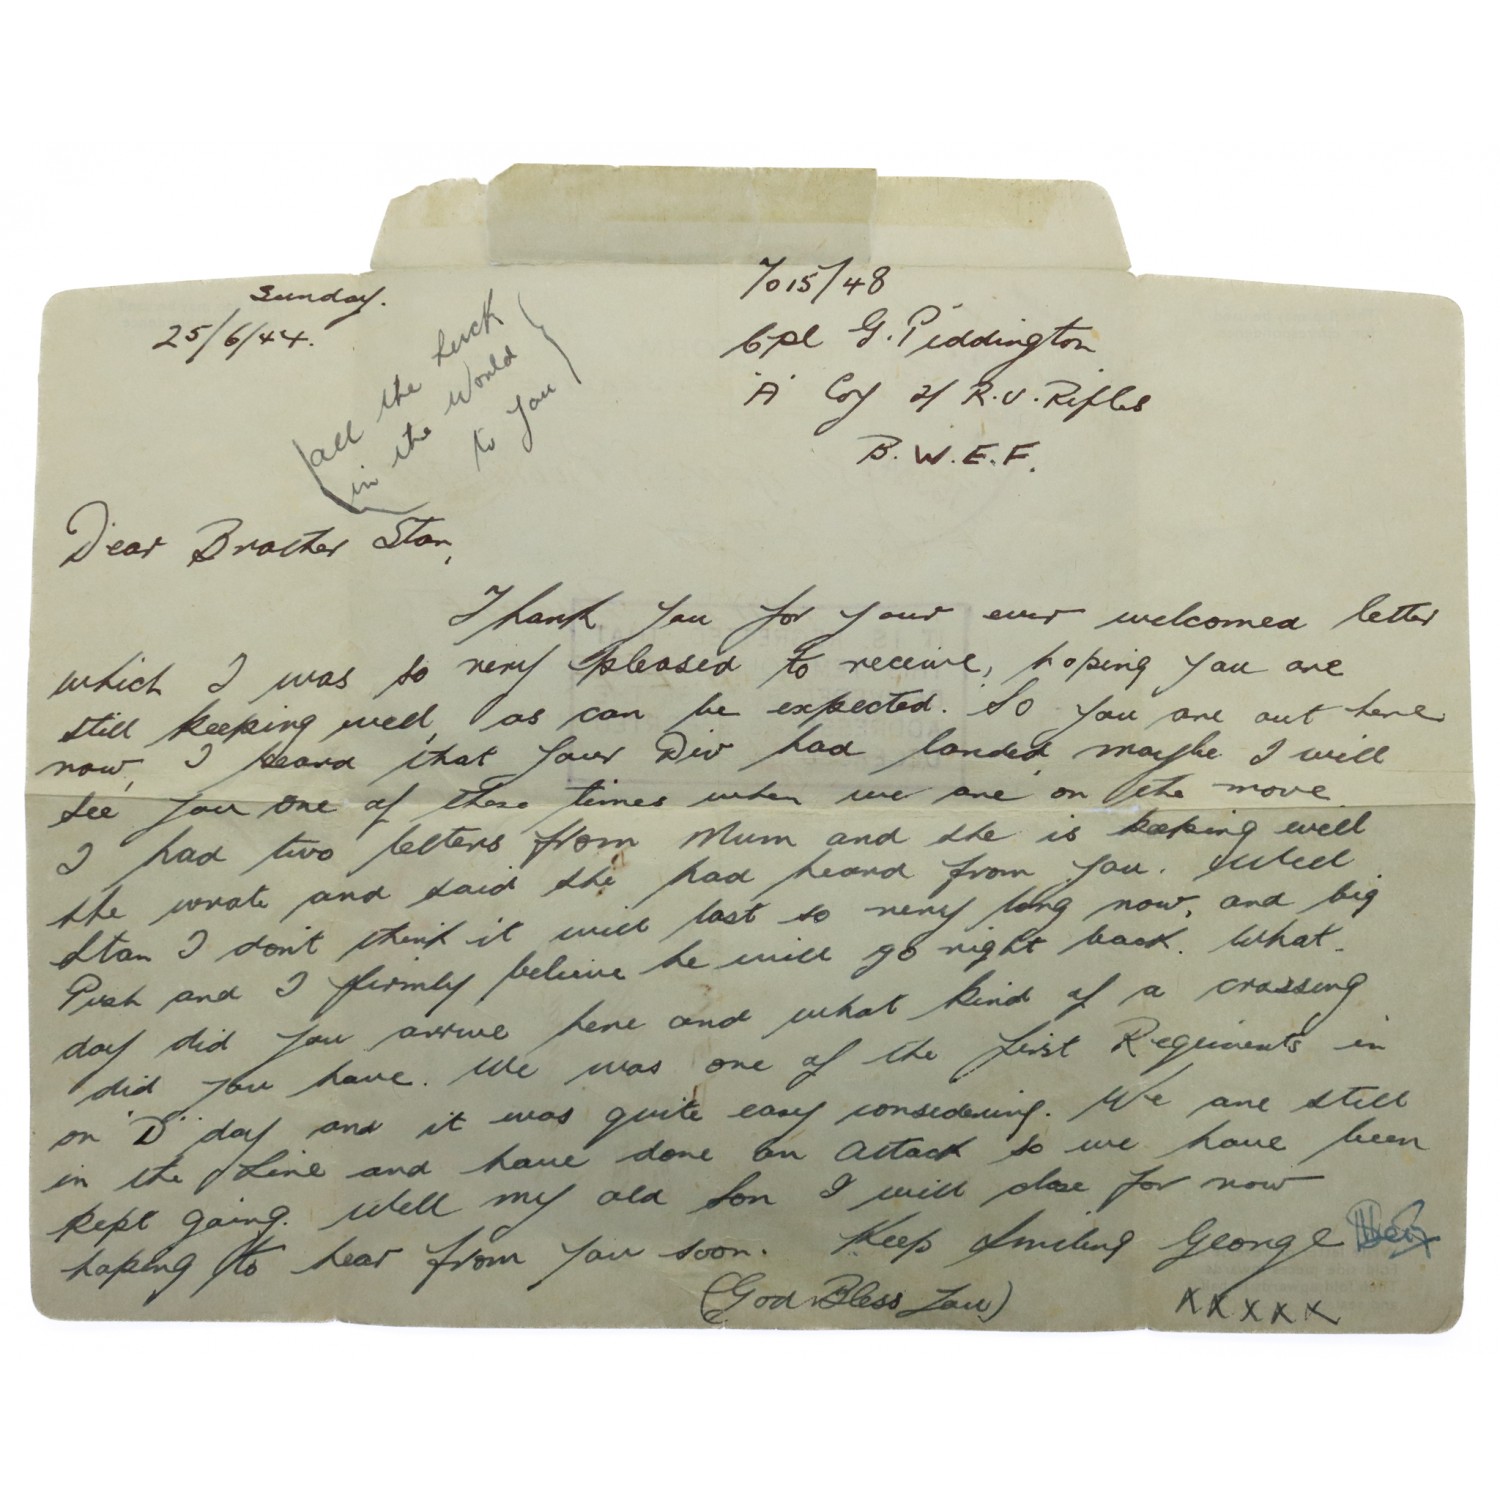 Sunday.
25/6/44.
(all the luck
in the World
to you)
7015748
Cpl G. Piddington
'A' Coy 2/ R.U. Rifles
B.W.E.F.
Dear Brother Stan,
Thank you for your ever welcomed letter
which I was so very pleased to receive, hoping you are
still keeping well, as can be expected. So you are out here
now, I heard that your Div had landed, maybe I will
see you one of these times when we are on the move
I had two letters from Mum and she is keeping well
she wrote and said she had heard from you. Well
Stan I don't think it will last so very long now, and big
Push and I firmly believe he will go right back. What
day did you arrive here and what kind of a crossing
did you have. We was one of the first Regiments in
on "D" day and it was quite easy considering. We are still
in the Line and have done an attack so we have been
kept going. Well my old Son I will close for now
hoping to hear from you soon. Keep Smiling George
(God Bless You) xxxxx